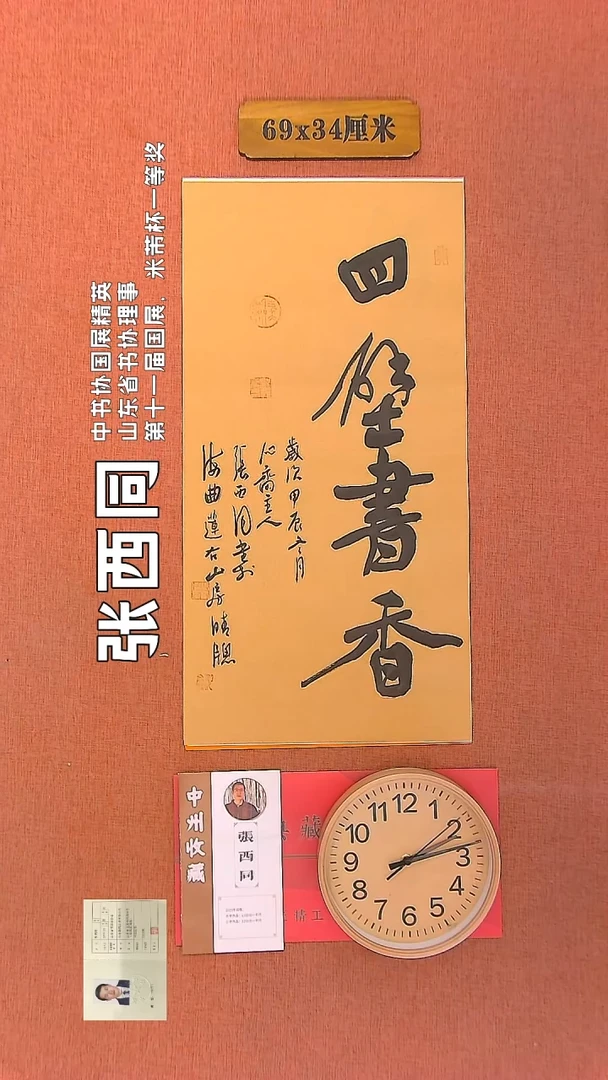 69x34厘米
中书协国展精英
山东省书协理事
第十一届国展、米芾杯一等奖
张西同
四壁書香
歲次甲辰冬月
沁齋主人
張西同書於
海曲蓮右山房晴窗
張西同
藏
精工
12
1
2
3
4
5
6
7
8
9
10
11